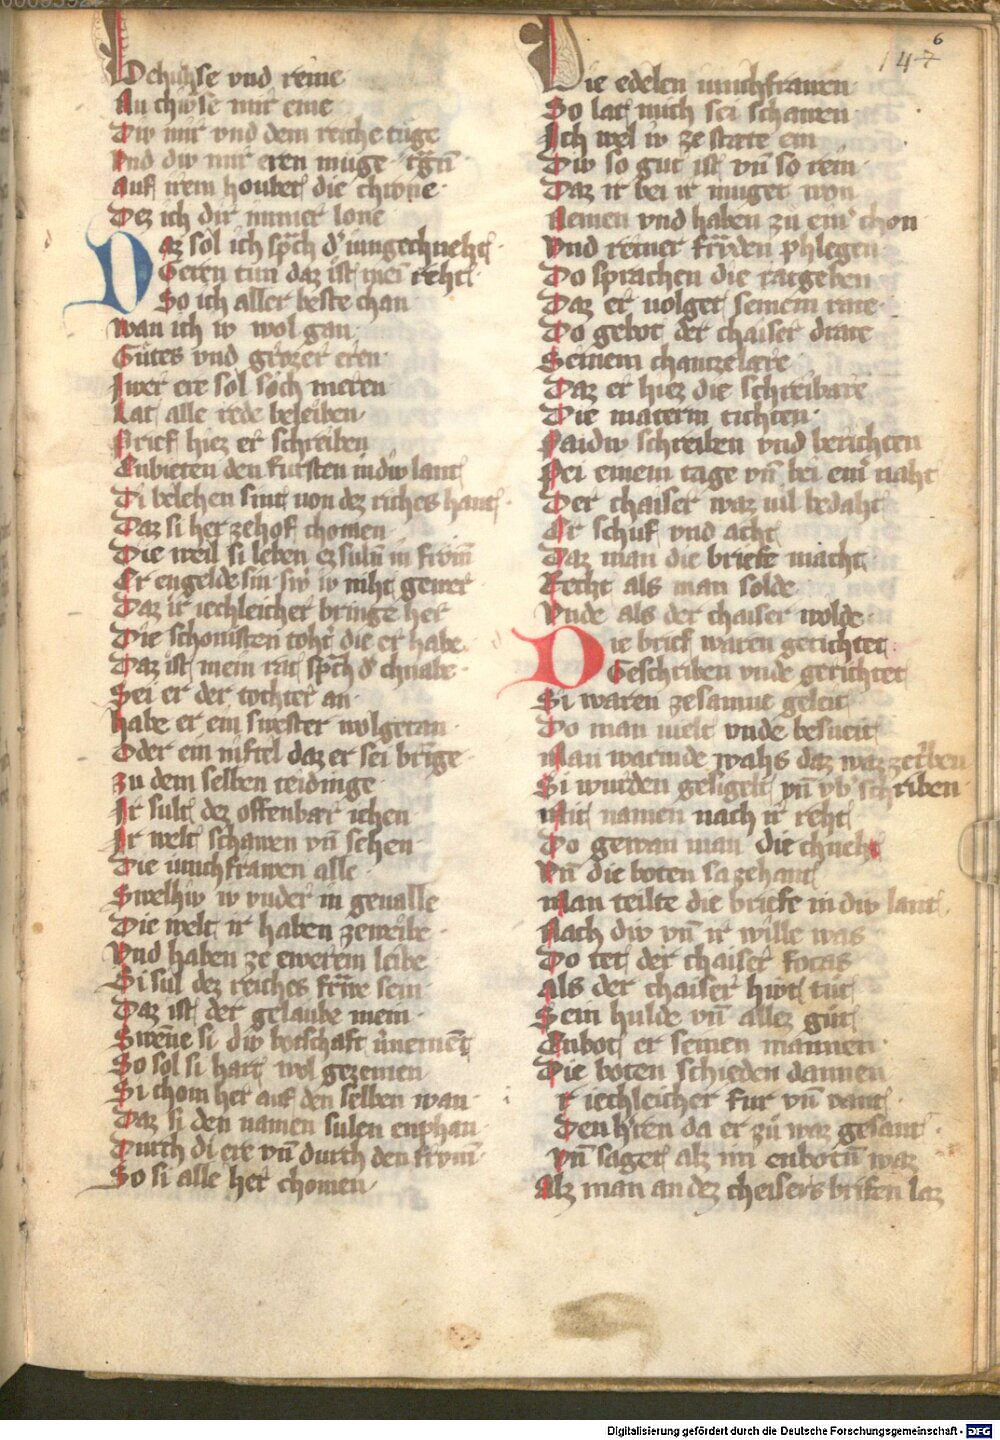 Dchusse vnd reine
Nu chivse mir eine
Div mir vnd dem reiche tuge
Vnd div mit eren muge tgn̄
Auf irem houbet die chrone
Dez ich dir immer lone
Daz sol ich sp̄ch d' iungechneht
Geren tun daz ist mei reht
So ich aller beste chan
wan ich iv wol gan
Gutes vnd grozer eren
Iwer ere sol sich meren
Lat alle rede beleiben
Brief hiez er schreiben
Enbieten den fursten in div lant
Di belehen sint von dez riches hant
Daz si her zehof chomen
Die weil si leben ez suln in from̄
Er engelde sin siv iv niht gewer
Daz ir iechleicher bringe her
Die schonisten toht die er habe
Daz ist mein rat sp̄ch d' chnabe
Sei er der tochter an
habe er ein swester wolgetan
Oder ein niftel daz er sei bringe
zu dem selben teidinge
Ir sult dez offenbar iehen
Ir welt schawen vn̄ sehen
Die iunchfrawen alle
Swelhiv iv vnder in geualle
Die welt ir haben zeweibe
Vnd haben ze ewerem leibe
Si sul dez reiches frwe sein
Daz ist der gelaube mein
Swenne si div botschaft v̊nement
So sol si hart wol gezemen
Si chom her auf den selben wan
Daz si den namen sulen enphan
Durch di ere vn̄ durch den from̄
So si alle her chomen
6
147
Die edelen iunchfrawen
So lat mich sei schawen
Ich wel iv ze state ein
Div so gut ist vn̄ so rein
Daz ir bei ir muget won
Nemen vnd haben zu ein' chon
Vnd reiner frevden phlegen
Do sprachen die ratgeben
Daz er uolget seinem rate
Do gebot der chaiser drate
Seinem chantzelere
Daz er hiez die schreibare
Die materin tichten
Paidiv schreiben vnd berichten
Pei einem tage vn̄ bei ein' naht
Der chaiser waz uil bedaht
Er schuf vnd acht
Daz man die briefe macht
Recht als man solde
Vnde als der chaiser wolde
Die brief waren gerichtet
Geschriben vnde gerichtet
Si waren zesamne geleit
Do man uielt vnde besneit
Man warmde wahs daz waz zetriben
Si wurden gesigelt vn̄ vb' schriben
Mit namen nach ir reht
Do gewan man die chneht
Vn̄ die boten sazehant
Man teilte die briefe in div lant
Nach div vn̄ ir wille was
Do tet der chaiser focas
Als der chaiser hivt tut
Sein hulde vn̄ allez gut
Enbot er seinen mannen
Die boten schieden dannen
ir iechleicher fur vn̄ vant
Den h'ren da er zu waz gesant
Vn̄ saget alz im enbotn̄ waz
Alz man an dez cheisers brifen laz
Digitalisierung gefördert durch die Deutsche Forschungsgemeinschaft - DFG